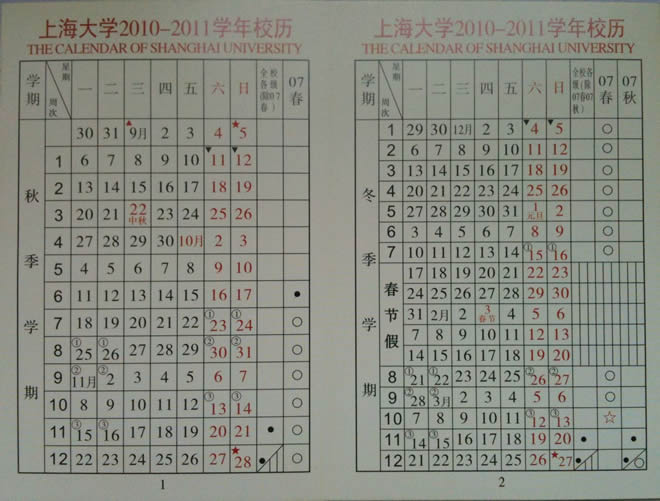 上海大学2010-2011学年校历
THE CALENDAR OF SHANGHAI UNIVERSITY
学期 星期 周次 一 二 三 四 五 六 日 全校各级(除07春) 07春
秋季学期
30 31 ▲9月 2 3 4 ★5
1 6 7 8 9 10 ▼11 ▼12
2 13 14 15 16 17 18 19
3 20 21 22中秋 23 24 25 26
4 27 28 29 30 10月 2 3
5 4 5 6 7 8 9 10
6 11 12 13 14 15 16 17 ●
7 18 19 20 21 22 ①23 ①24 ○
8 ①25 ①26 27 28 29 ②30 ②31 ○
9 ②11月 ②2 3 4 5 6 7 ○
10 8 9 10 11 12 ③13 ③14 ○
11 ③15 ③16 17 18 19 20 21 ● ○
12 22 23 24 25 26 27 ★28 ● ○
1
上海大学2010-2011学年校历
THE CALENDAR OF SHANGHAI UNIVERSITY
学期 星期 周次 一 二 三 四 五 六 日 全校各级(除07春07秋) 07春 07秋
冬季学期
1 29 30 12月 2 3 ▼4 ▼5 ○
2 6 7 8 9 10 11 12 ○
3 13 14 15 16 17 18 19 ○
4 20 21 22 23 24 25 26 ○
5 27 28 29 30 31 1元旦 2 ○
6 3 4 5 6 7 8 9 ○
7 10 11 12 13 14 ①15 ①16 ○
春节假
17 18 19 20 21 22 23
24 25 26 27 28 29 30
31 2月 2 3春节 4 5 6
7 8 9 10 11 12 13
14 15 16 17 18 19 20
8 ①21 ①22 23 24 25 ②26 ②27 ○
9 ②28 ②3月 2 3 4 5 6 ○
10 7 8 9 10 11 ③12 ③13 ☆
11 ③14 ③15 16 17 18 19 20 ● ● ●
12 21 22 23 24 25 26 ★27 ● ● ●
2